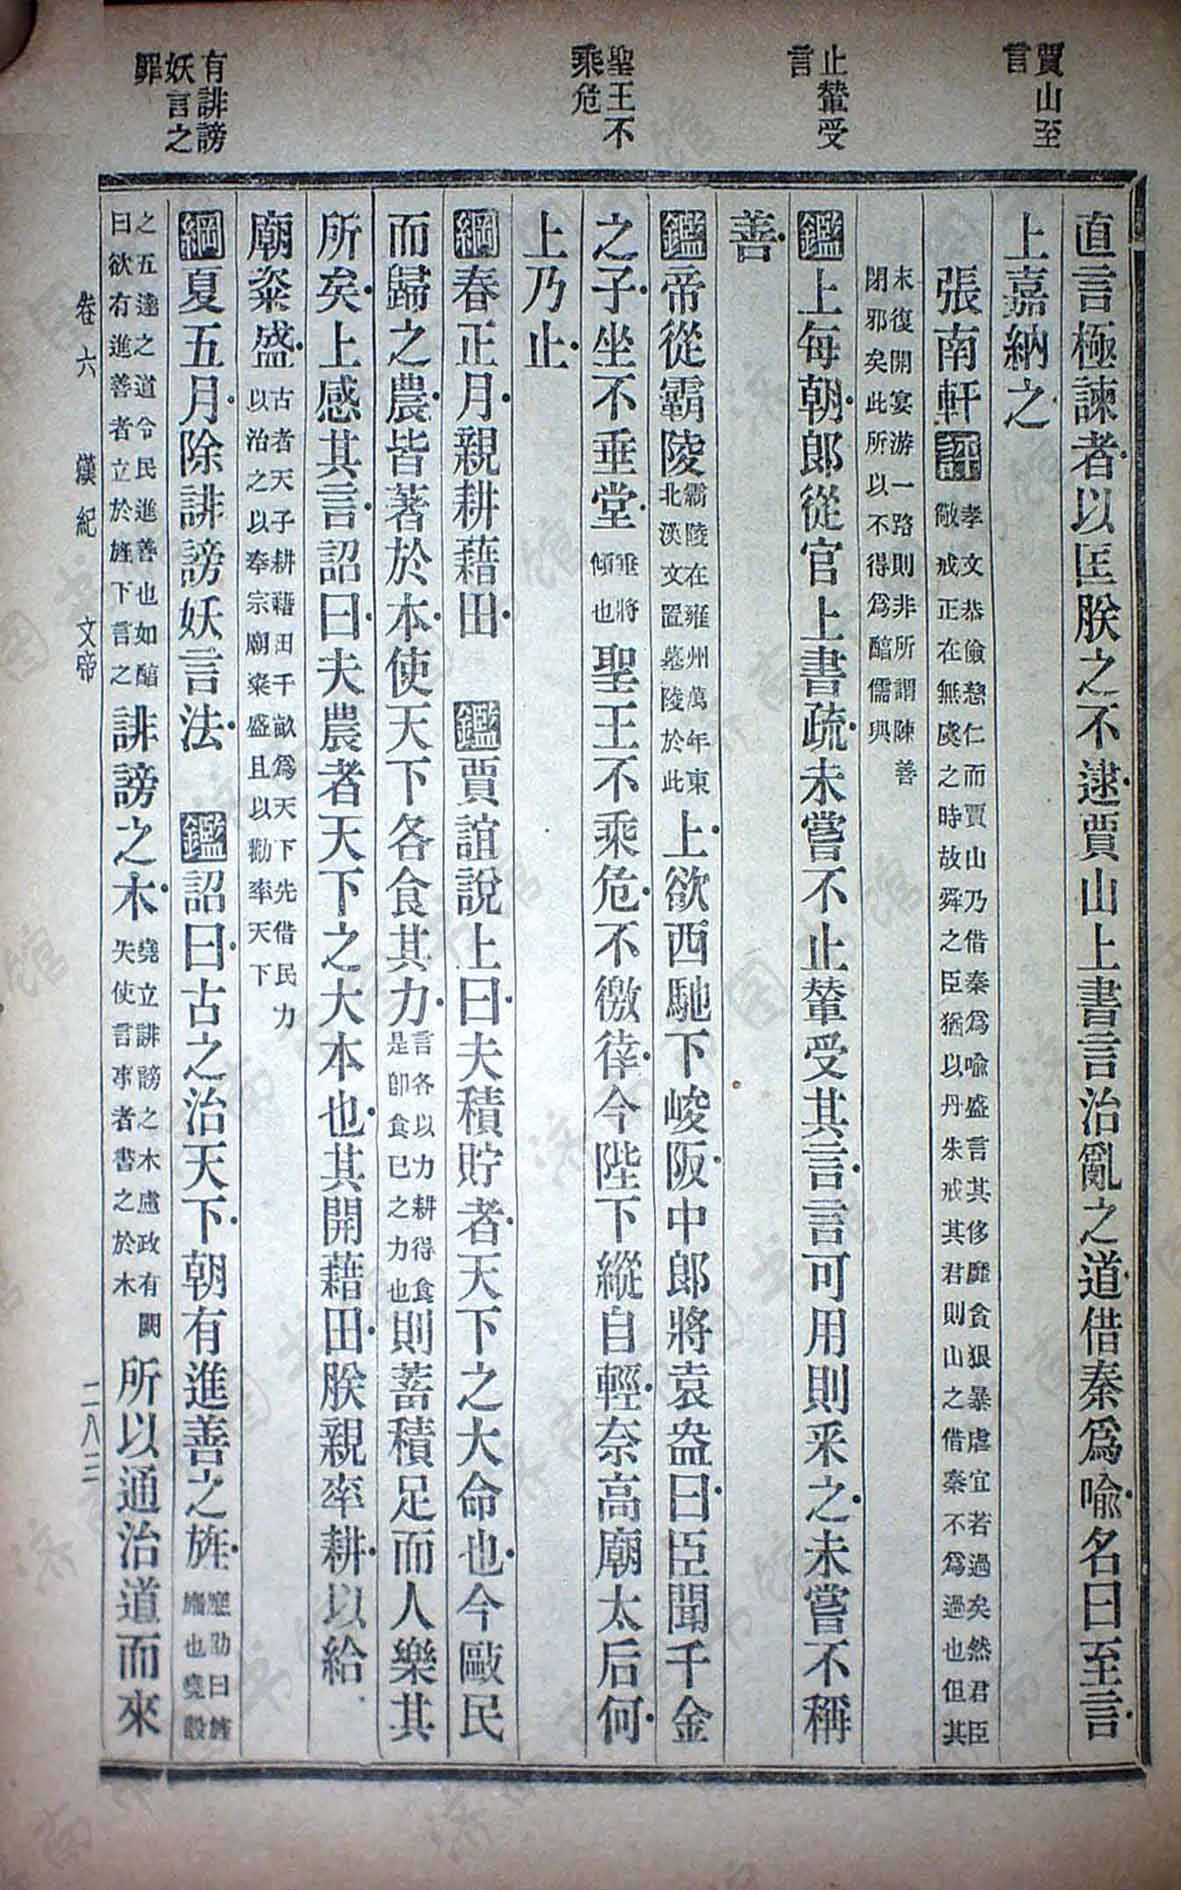 賈山至
言
止輦受
言
聖王不
乘危
有誹謗
妖言之
罪
直言極諫者以匡朕之不逮賈山上書言治亂之道借秦爲喻名曰至言
上嘉納之
張南軒評孝文恭儉慈仁而賈山乃借秦爲喻盛言其侈靡貪狠暴虐宜若過矣然君臣
儆戒正在無虞之時故舜之臣猶以丹朱戒其君則山之借秦不爲過也但其
末復開宴游一路則非所謂陳善
閉邪矣此所以不得爲醇儒與
鑑上每朝郎從官上書疏未嘗不止輦受其言言可用則采之未嘗不稱
善
鑑帝從霸陵霸陵在雍州萬年東
北漢文置墓陵於此上欲西馳下峻阪中郎將袁盎曰臣聞千金
之子坐不垂堂垂將
傾也聖王不乘危不徼倖今陛下縱自輕奈高廟太后何
上乃止
綱春正月親耕藉田 鑑賈誼說上曰夫積貯者天下之大命也今歐民
而歸之農皆著於本使天下各食其力言各以力耕得食
是卽食已之力也則蓄積足而人樂其
所矣上感其言詔曰夫農者天下之大本也其開藉田朕親率耕以給
廟粢盛古者天子耕藉田千畝爲天下先借民力
以治之以奉宗廟粢盛且以勸率天下
綱夏五月除誹謗妖言法 鑑詔曰古之治天下朝有進善之旌應劭曰旌
旛也堯設
之五達之道令民進善也如醋
曰欲有進善者立於旌下言之誹謗之木堯立誹謗之木慮政有闕
失使言事者書之於木所以通治道而來
卷六 漢紀 文帝 二八三